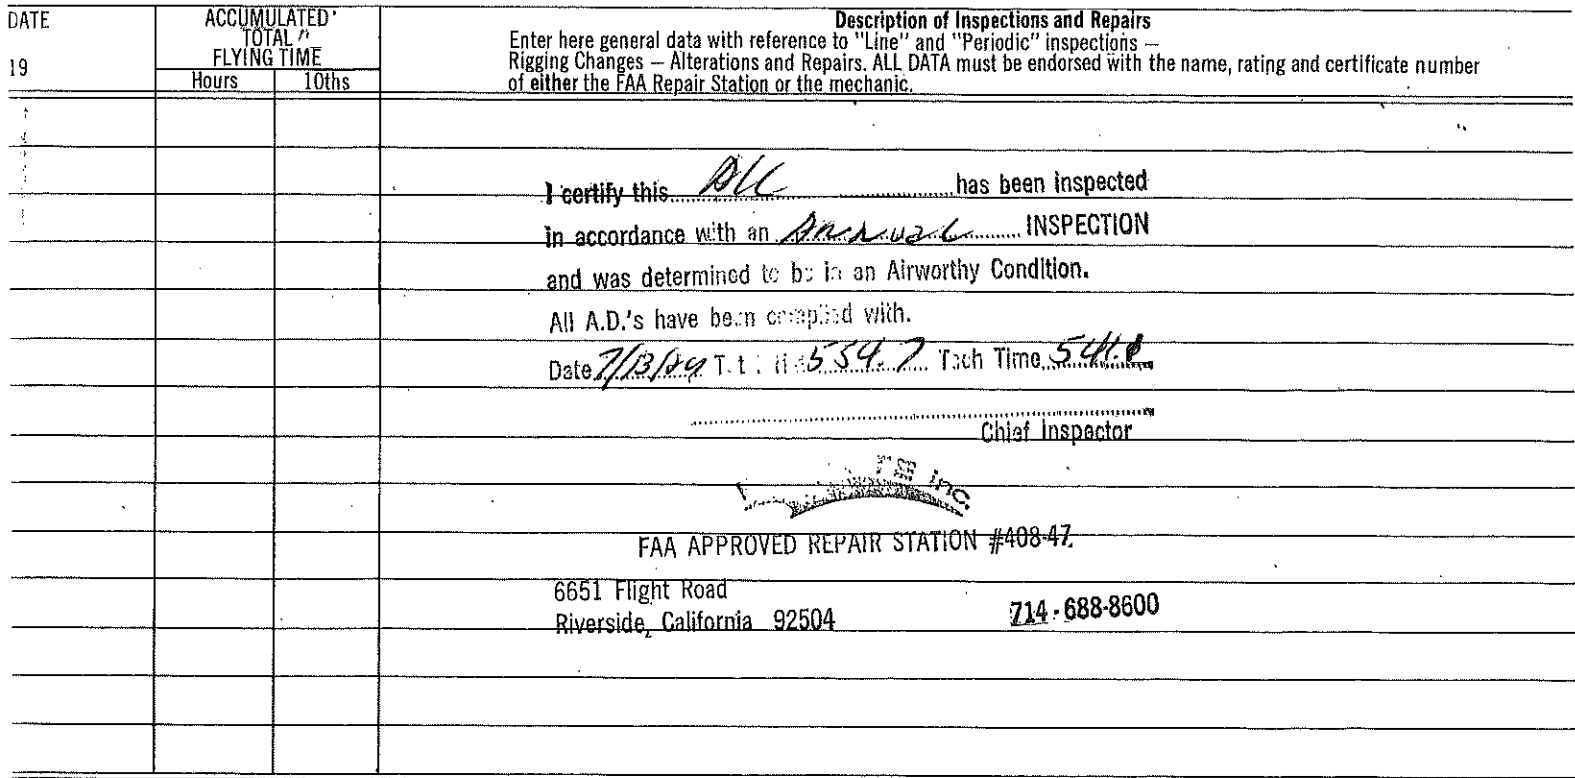 DATE
19
ACCUMULATED
TOTAL
FLYING TIME
Hours 10ths
Description of Inspections and Repairs
Enter here general data with reference to "Line" and "Periodic" inspections —
Rigging Changes — Alterations and Repairs. ALL DATA must be endorsed with the name, rating and certificate number
of either the FAA Repair Station or the mechanic.
I certify this A/C has been inspected
in accordance with an Annual INSPECTION
and was determined to be in an Airworthy Condition.
All A.D.'s have been complied with.
Date 554.7 Tach Time
Chief Inspector
Inc.
FAA APPROVED REPAIR STATION #408-47
6651 Flight Road
Riverside, California 92504 714-688-8600